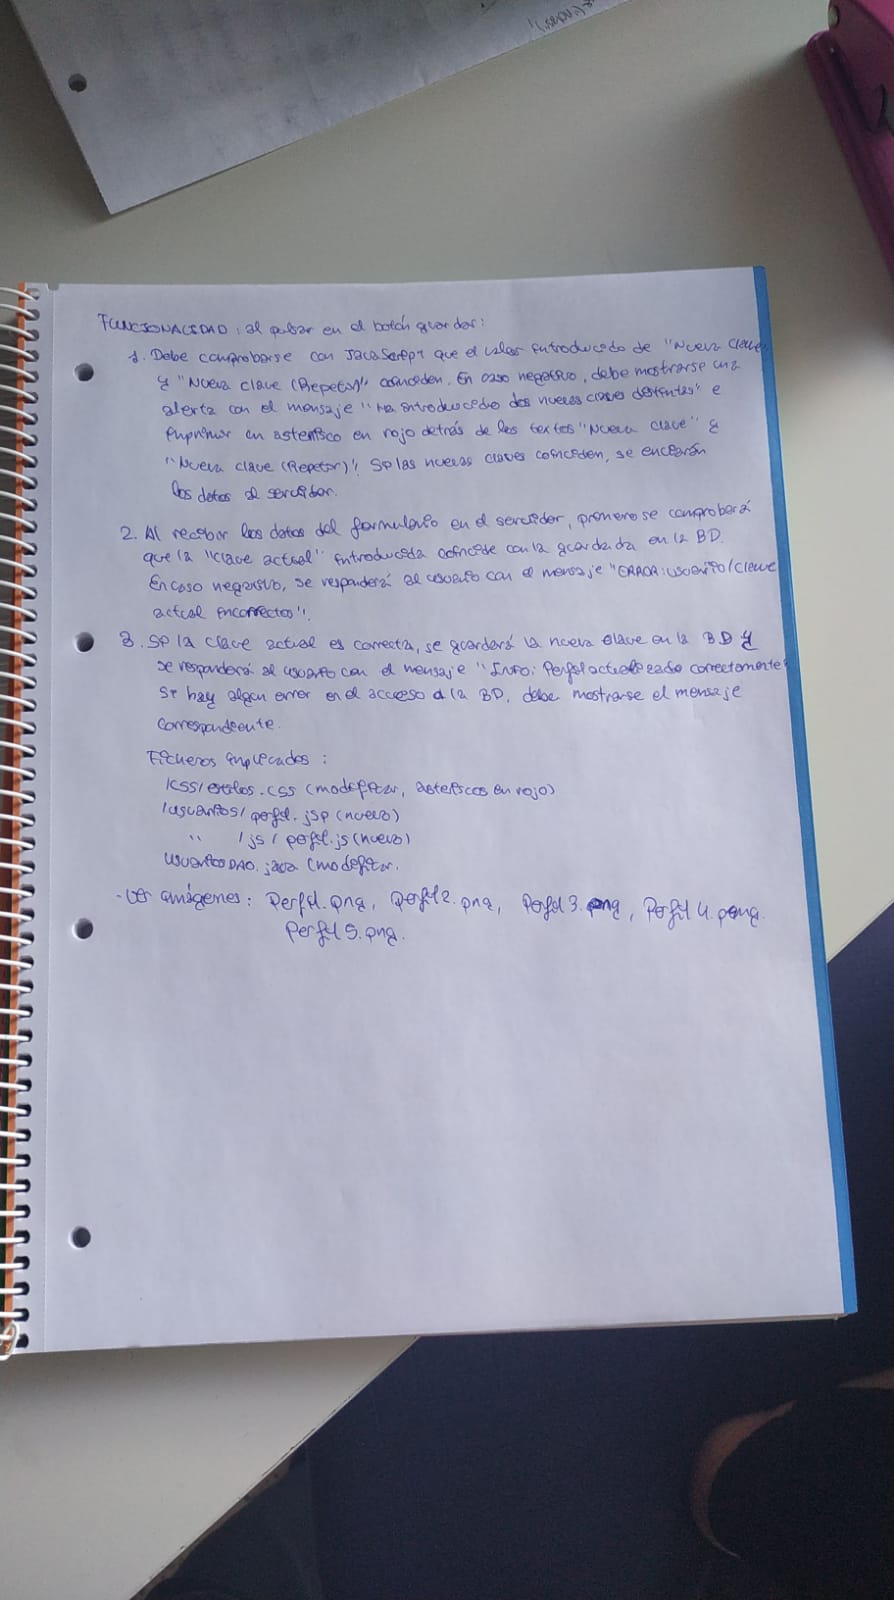 FUNCIONALIDAD: al pulsar en el botón guardar:
1. Debe comprobarse con JavaScript que el valor introducido de "Nueva clave"
y "Nueva clave (Repetir)" coinciden. En caso negativo, debe mostrarse una
alerta con el mensaje "Ha introducido dos nuevas claves distintas" e
imprimir un asterisco en rojo detrás de los textos "Nueva clave" y
"Nueva clave (Repetir)". Si las nuevas claves coinciden, se enviarán
los datos al servidor.
2. Al recibir los datos del formulario en el servidor, primero se comprobará
que la "clave actual" introducida coincide con la guardada en la BD.
En caso negativo, se responderá al usuario con el mensaje "ERROR: usuario/clave
actual incorrectos".
3. Si la clave actual es correcta, se guardará la nueva clave en la BD y
se responderá al usuario con el mensaje "Info: Perfil actualizado correctamente"
Si hay algún error en el acceso a la BD, debe mostrarse el mensaje
correspondiente.
Ficheros implicados:
/css/estilos.css (modificar, asteriscos en rojo)
/usuarios/perfil.jsp (nuevo)
" /js/perfil.js (nuevo)
UsuariosDAO.java (modificar.
-Ver imágenes: Perfil.png, Perfil2.png, Perfil3.png, Perfil4.png.
Perfil5.png.